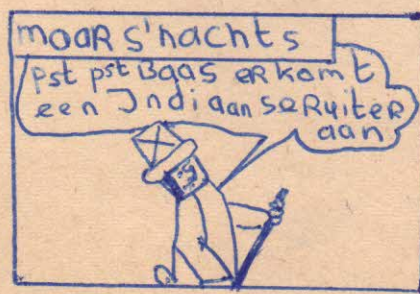 moaR s'nachts
pst pst Baas er komt
een Indiaanse Ruiter
aan